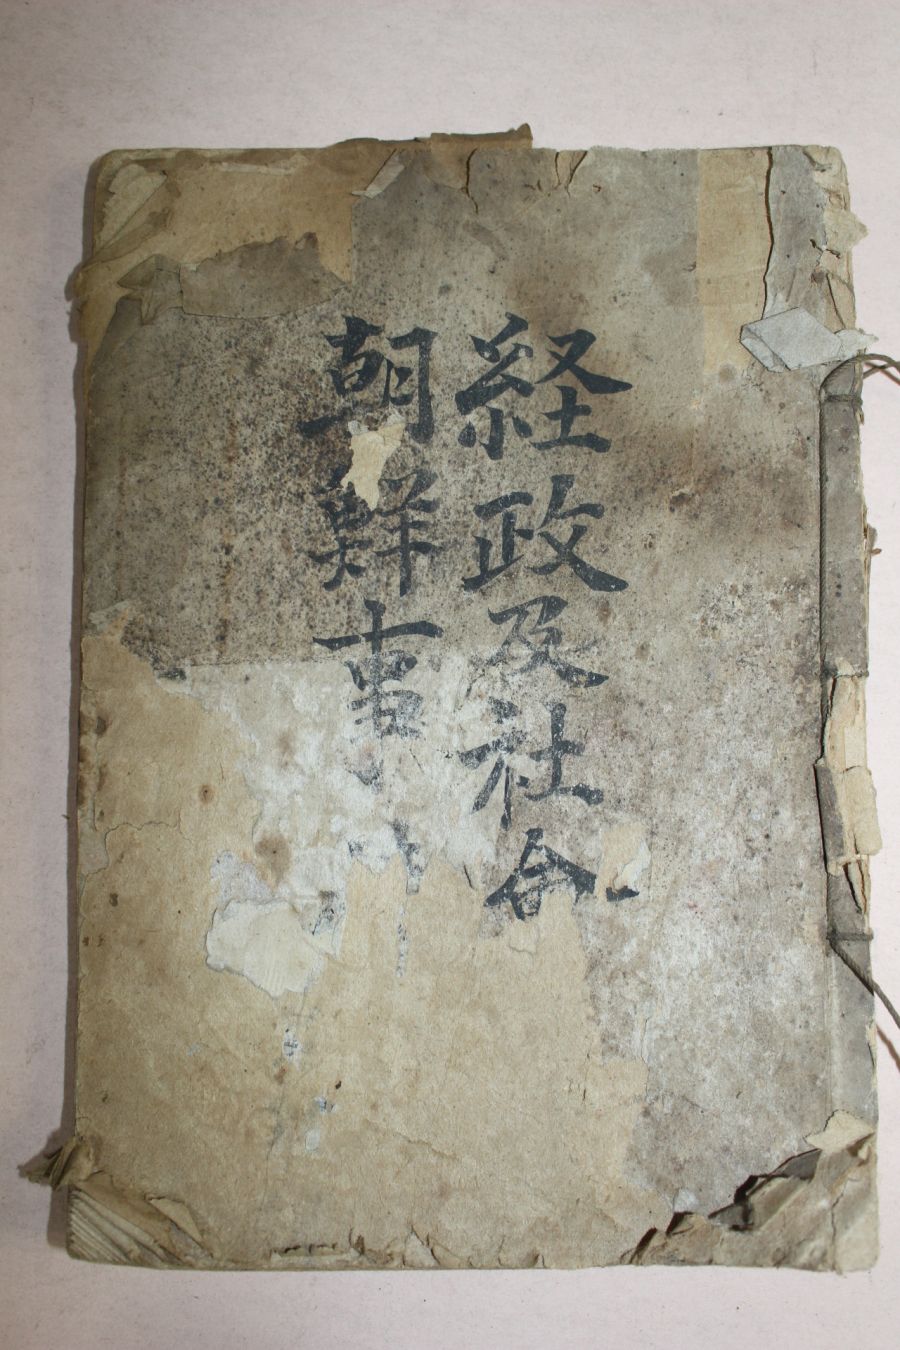 経政及社会
朝鮮事